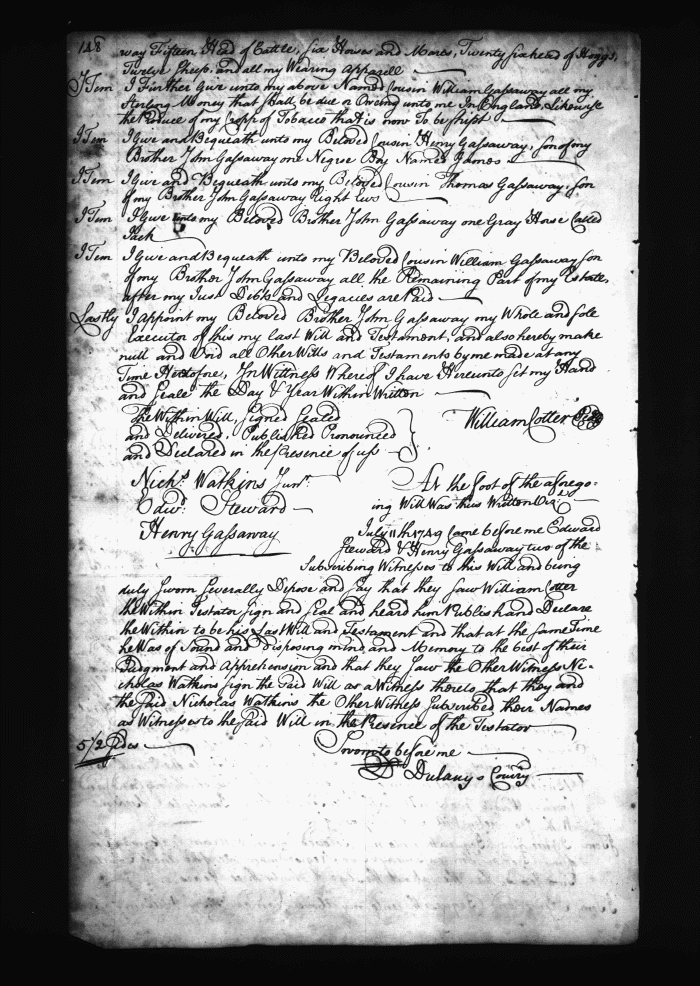 148
way Fifteen Head of Cattle, six Horses and Mares, Twenty six head of Hoggs,
Twelve Sheep, and all my Wearing Apparell
ITem I Further Give unto my above Named Cousin William Gassaway all my
Sterling Money that shall be due or Oweing unto me In England Likewise
the Produce of my Cropp of Tobacco that is now To be shipt
ITem I Give and Bequeath unto my Beloved Cousin Henry Gassaway, son of my
Brother John Gassaway one Negroe Boy Named James
ITem I Give and Bequeath unto my Beloved Cousin Thomas Gassaway, son
of my Brother John Gassaway Eight Ews
ITem I Give unto my Beloved Brother John Gassaway one Gray Horse Called
Jack
ITem I Give and Bequeath unto my Beloved Cousin William Gassaway son
of my Brother John Gassaway all the Remaining Part of my Estate,
after my Just Debts and Legacies are Paid
Lastly I Appoint my Beloved Brother John Gassaway my Whole and sole
Executor of this my last Will and Testament, and also hereby make
null and Void all Other Wills and Testaments by me made at any
Time Heretofore, In Wittness Whereof I have Hereunto set my Hand
and Seale the Day & Year Within Written
The Within Will, Signed Sealed
and Delivered, Published Pronounced
and Declared in the Presence of uss
William Cotter Seal
Nichs. Watkins Junr.
Edwd. Steward
Henry Gassaway
At the foot of the aforego-
ing Will Was thus Written Viz.
July 11th 1749 Came before me Edward
Steward & Henry Gassaway two of the
Subscribing Witnesses to this Will and being
duly Sworn Severally Depose and Say that they Saw William Cotter
the Within Testator Sign and Seal and heard him Publish and Declare
the Within to be his Last Will and Testament and that at the same Time
he Was of Sound and Disposing mind, and Memory to the best of their
Judgment and Apprehension and that they Saw the Other Witness Ni-
cholas Watkins Sign the Said Will as a Witness thereto that they and
the Said Nicholas Watkins the Other Witness Subscribed their Names
as Witnesses to the Said Will in the Presence of the Testator
5 1/2 Sides
Sworn to before me
Dulany Comry